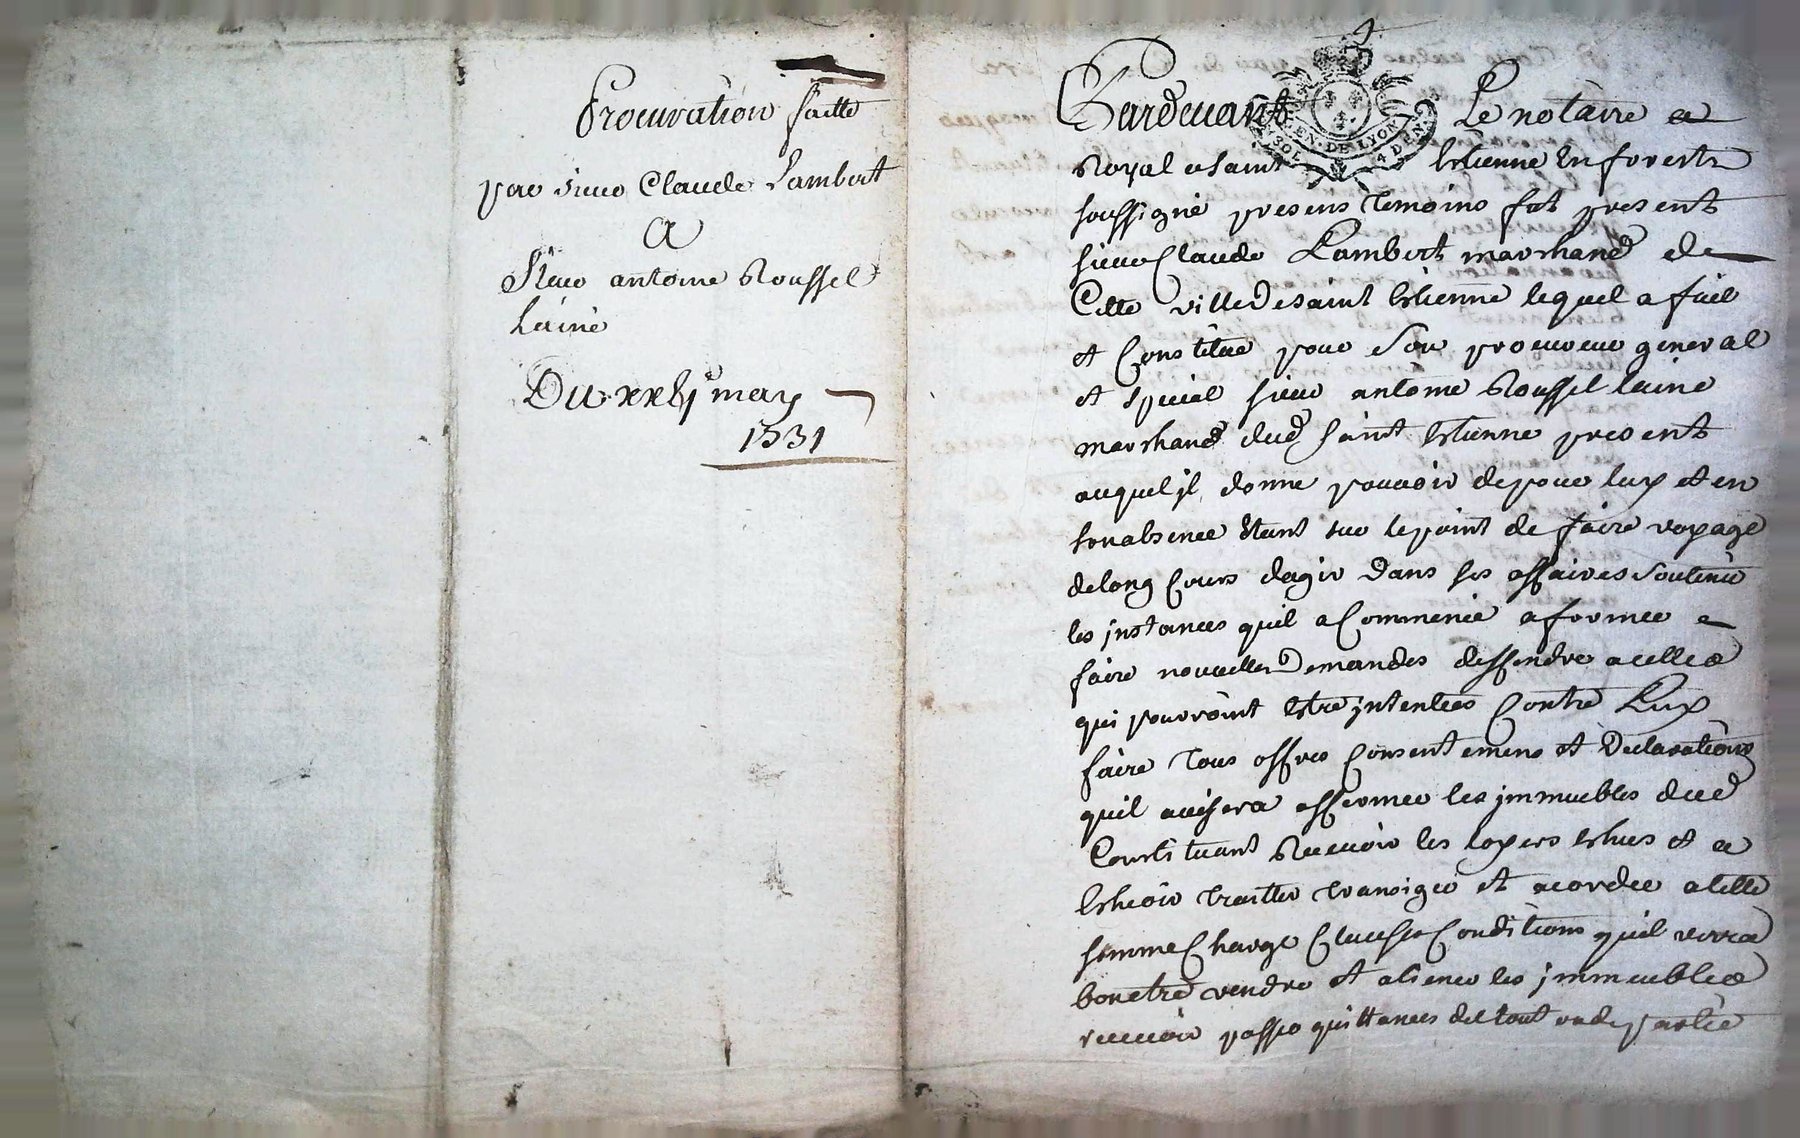 Procuration faitte
par sieur Claude Lambert
A
Sieur antoine Roussel
laine
Du may
1731
GEN. DE LYON
SOL 4 DEN.
Pardevant Le notaire
Royal a saint Estienne en forests
soussigné presens temoins fut present
sieur Claude Lambert marchand de
Cette ville de saint Estienne lequel a fait
et Constitué pour Son procureur general
et special sieur antoine Roussel laine
marchand dud saint Estienne present
auquel jl donne pouvoir de pour luy et en
son absence Etant sur le point de faire voyage
de long Cours dagir Dans ses affaires Soutenir
les jnstances quil a Commencé a former
faire nouvelles Demandes deffendre a celles
qui pourroint Estre jntentées Contre Luy
faire Tous offres Consentemens et Declarations
quil avisera affermer les jmmeubles dud
Constituant Recevoir les loyers Eshus et a
Esheoir traitter transiger et acorder a telle
somme Charge Clauses Conditions quil verra
bon etre vendre et aliener les jmmeubles
recevoir passer quittances de tout ou de partie